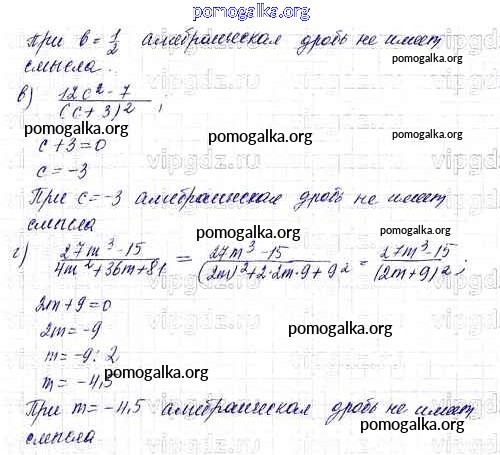 pomogalka.org
При b = 1/2 алгебраическая дробь не имеет
смысла.
в) (12c² - 7)/(c + 3)²;
pomogalka.org
pomogalka.org
c + 3 = 0
c = -3
pomogalka.org
При c = -3 алгебраическая дробь не имеет
смысла
pomogalka.org
г) (27m³ - 15)/(4m² + 36m + 81) = (27m³ - 15)/((2m)² + 2·2m·9 + 9²) = (27m³ - 15)/(2m + 9)²;
pomogalka.org
2m + 9 = 0
2m = -9
pomogalka.org
m = -9 : 2
pomogalka.org
m = -4,5
При m = -4,5 алгебраическая дробь не имеет
смысла
pomogalka.org